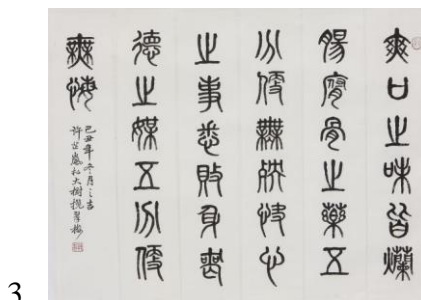 爽口之味皆爛
腸腐骨之藥五
分便無殃快心
之事悉敗身喪
德之媒五分便
無悔
己丑年冬月之吉
許於大樹攬翠樓
3